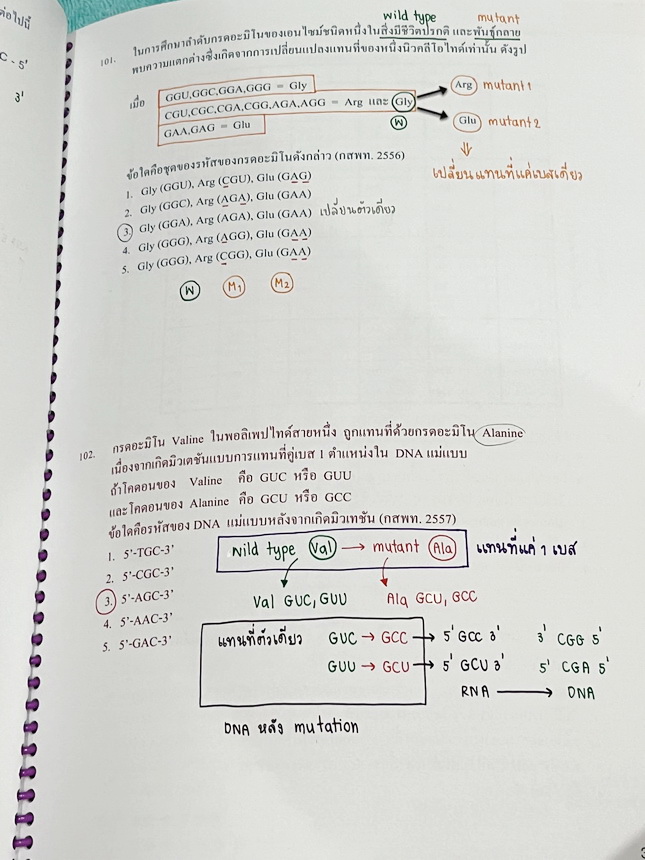 ต่อไปนี้
C - 5'
3'
wild type mutant
101. ในการศึกษาลำดับกรดอะมิโนของเอนไซม์ชนิดหนึ่งในสิ่งมีชีวิตปรกติ และพันธุ์กลาย
พบความแตกต่างซึ่งเกิดจากการเปลี่ยนแปลงแทนที่ของหนึ่งนิวคลีโอไทด์เท่านั้น ดังรูป
เมื่อ GGU,GGC,GGA,GGG = Gly
CGU,CGC,CGA,CGG,AGA,AGG = Arg และ Gly
GAA,GAG = Glu
W
Arg mutant 1
Glu mutant 2
เปลี่ยนแทนที่แค่เบสเดียว
ข้อใดคือชุดของรหัสของกรดอะมิโนดังกล่าว (กสพท. 2556)
1. Gly (GGU), Arg (CGU), Glu (GAG)
2. Gly (GGC), Arg (AGA), Glu (GAA)
3. Gly (GGA), Arg (AGA), Glu (GAA) เปลี่ยนตัวเดียว
4. Gly (GGG), Arg (AGG), Glu (GAA)
5. Gly (GGG), Arg (CGG), Glu (GAA)
W M1 M2
102. กรดอะมิโน Valine ในพอลิเพปไทด์สายหนึ่ง ถูกแทนที่ด้วยกรดอะมิโน Alanine
เนื่องจากเกิดมิวเตชันแบบการแทนที่คู่เบส 1 ตำแหน่งใน DNA แม่แบบ
ถ้าโคดอนของ Valine คือ GUC หรือ GUU
และโคดอนของ Alanine คือ GCU หรือ GCC
ข้อใดคือรหัสของ DNA แม่แบบหลังจากเกิดมิวเทชัน (กสพท. 2557)
1. 5'-TGC-3'
2. 5'-CGC-3'
3. 5'-AGC-3'
4. 5'-AAC-3'
5. 5'-GAC-3'
Wild type Val → mutant Ala แทนที่แค่ 1 เบส
Val GUC, GUU Ala GCU, GCC
แทนที่ตัวเดียว GUC → GCC → 5' GCC 3' 3' CGG 5'
GUU → GCU → 5' GCU 3' 5' CGA 5'
RNA → DNA
DNA หลัง mutation
3